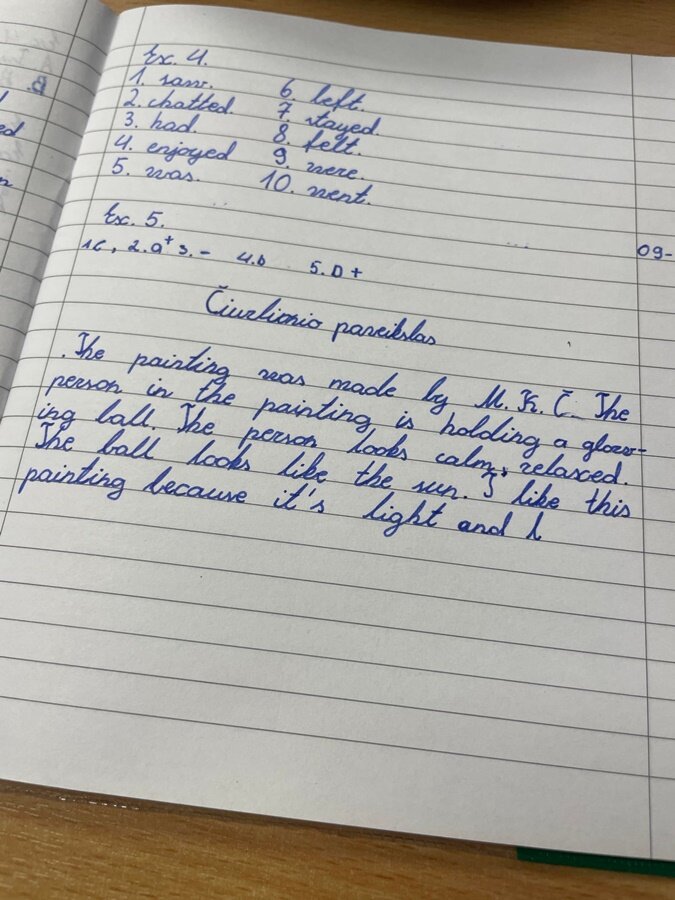 Ex. 4.
1. saw.
2. chatted.
3. had.
4. enjoyed
5. was.
6. left.
7. stayed.
8. felt.
9. were.
10. went.
Ex. 5.
1c, 2.a+ 3.- 4.b 5.D+
09-
Čiurlionio paveikslas
. The painting was made by M. K. Č. The
person in the painting is holding a glow-
ing ball. The person looks calm, relaxed.
The ball looks like the sun. I like this
painting because it's light and l